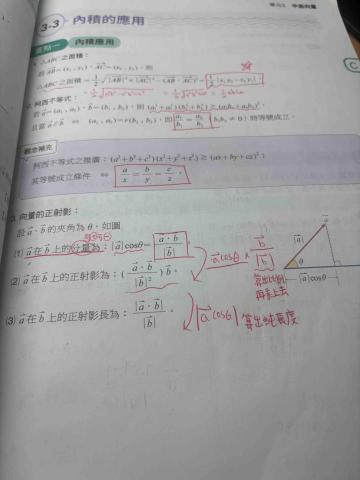 單元3 平面向量
3-3 內積的應用
重點一 內積應用
1. △ABC之面積：
設 AB=(x₁, y₁)，AC=(x₂, y₂)，則
△ABC之面積=1/2√(|AB|²×|AC|²-(AB·AC)²)=1/2|x₁y₂-x₂y₁|。
2. 柯西不等式：
若 a=(a₁, a₂)，b=(b₁, b₂)，則 (a₁²+a₂²)(b₁²+b₂²)≥(a₁b₁+a₂b₂)²，
且當 a∥b ⇔ (a₁, a₂)=r(b₁, b₂)，即 a₁/b₁=a₂/b₂ (b₁b₂≠0) 時等號成立。
觀念補充
柯西不等式之推廣：(a²+b²+c²)(x²+y²+z²)≥(ax+by+cz)²；
其等號成立條件 ⇔ a/x=b/y=c/z。
3. 向量的正射影：
設 a、b 的夾角為 θ，如圖
(1) a 在 b 上的分量為：|a|cosθ=a·b/|b|。
(2) a 在 b 上的正射影為：(a·b/|b|²)b。
(3) a 在 b 上的正射影長為：|a·b|/|b|。
a cosθ × b/|b|
再乘上去
|a cosθ| 算出純長度
a
|a|
θ
|a|cosθ